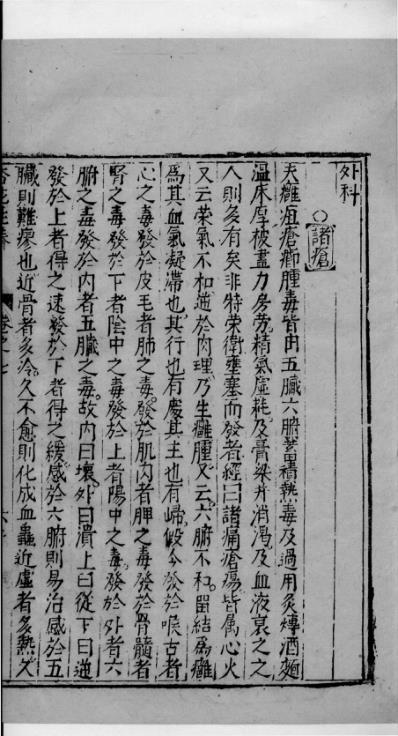 外科
○諸瘡
夫癰疽瘡癤腫毒皆由五臟六腑蓄積熱毒及過用炙煿酒麵
溫床厚被盡力房勞精氣虛耗及膏粱并消渴及血液衰之之
人則多有矣非特榮衛壅塞而發者經曰諸痛瘡瘍皆属心火
又云榮氣不和逆於肉理乃生癰腫又云六腑不和留結為癰
為其血氣凝滯也其行也有處其主也有歸假令發於喉舌者
心之毒發於皮毛者肺之毒發於肌肉者脾之毒發於骨髓者
腎之毒發於下者陰中之毒發於上者陽中之毒發於外者六
腑之毒發於內者五臟之毒故內曰壞外曰潰上曰從下曰逆
發於上者得之速發於下者得之緩感於六腑則易治感於五
臟則難瘳也近骨者多冷久不愈則化成血蟲近虛者多熱久
卷之七